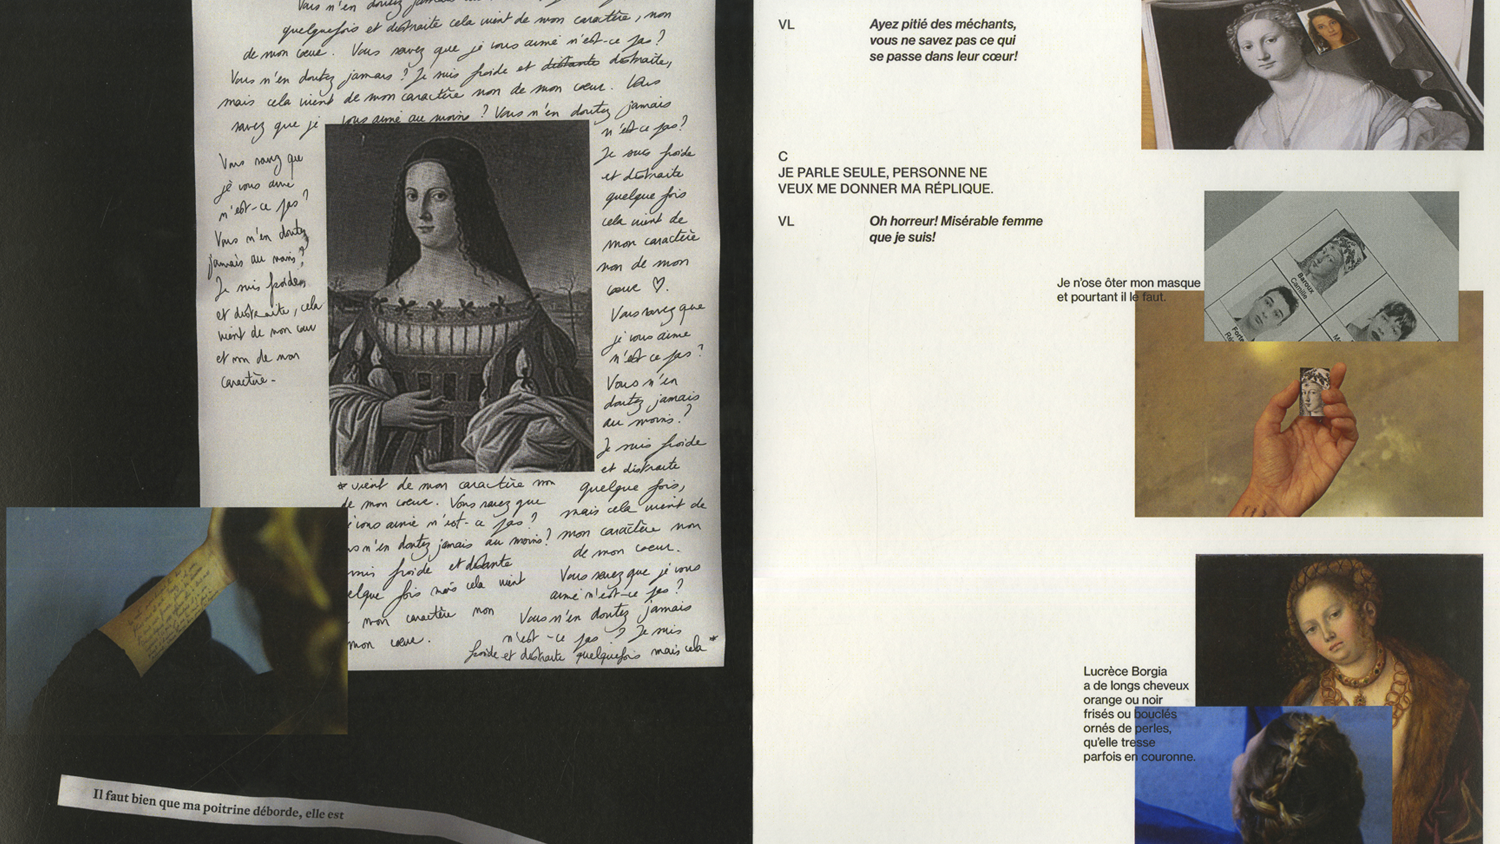 Vous n'en doutez jamais
quelquefois et distraite cela vient de mon caractère, non
de mon cœur. Vous savez que je vous aime n'est-ce pas ?
Vous n'en doutez jamais ? Je suis froide et distante distraite,
mais cela vient de mon caractère non de mon cœur. Vous
savez que je vous aime au moins ? Vous n'en doutez jamais
Vous savez que
je vous aime
n'est-ce pas ?
Vous n'en doutez
jamais au moins ?
Je suis froide
et distraite, cela
vient de mon cœur
et non de mon
caractère.
n'est-ce pas ?
Je suis froide
et distraite
quelque fois
cela vient de
mon caractère
non de mon
cœur ♡.
Vous savez que
je vous aime
n'est ce pas ?
Vous n'en
doutez jamais
au moins ?
Je suis froide
et distraite
quelque fois,
mais cela vient de
mon caractère non
de mon cœur.
Vous savez que je vous
aime n'est-ce pas ?
Vous n'en doutez jamais
n'est-ce pas ? Je suis
froide et distraite quelquefois mais cela *
* vient de mon caractère non
de mon cœur. Vous savez que
je vous aime n'est-ce pas ?
n'en doutez jamais au moins ?
suis froide et distante
quelque fois mais cela vient
mon caractère non
mon cœur.
Il faut bien que ma poitrine déborde, elle est
VL
Ayez pitié des méchants,
vous ne savez pas ce qui
se passe dans leur cœur!
C
JE PARLE SEULE, PERSONNE NE
VEUX ME DONNER MA RÉPLIQUE.
VL
Oh horreur! Misérable femme
que je suis!
Je n'ose ôter mon masque
et pourtant il le faut.
Baroux
Camille
Lucrèce Borgia
a de longs cheveux
orange ou noir
frisés ou bouclés
ornés de perles,
qu'elle tresse
parfois en couronne.